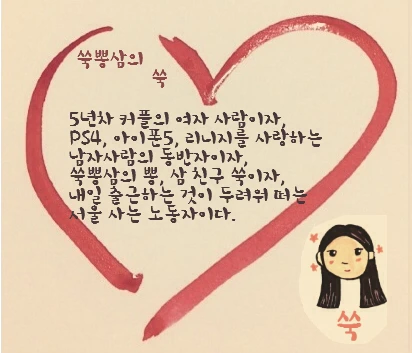 쑥뽕삼의
쑥
5년차 커플의 여자 사람이자,
PS4, 아이폰5, 리니지를 사랑하는
남자사람의 동반자이자,
쑥뽕삼의 뽕, 삼 친구 쑥이자,
내일 출근하는 것이 두려워 떠는
서울 사는 노동자이다.
쑥